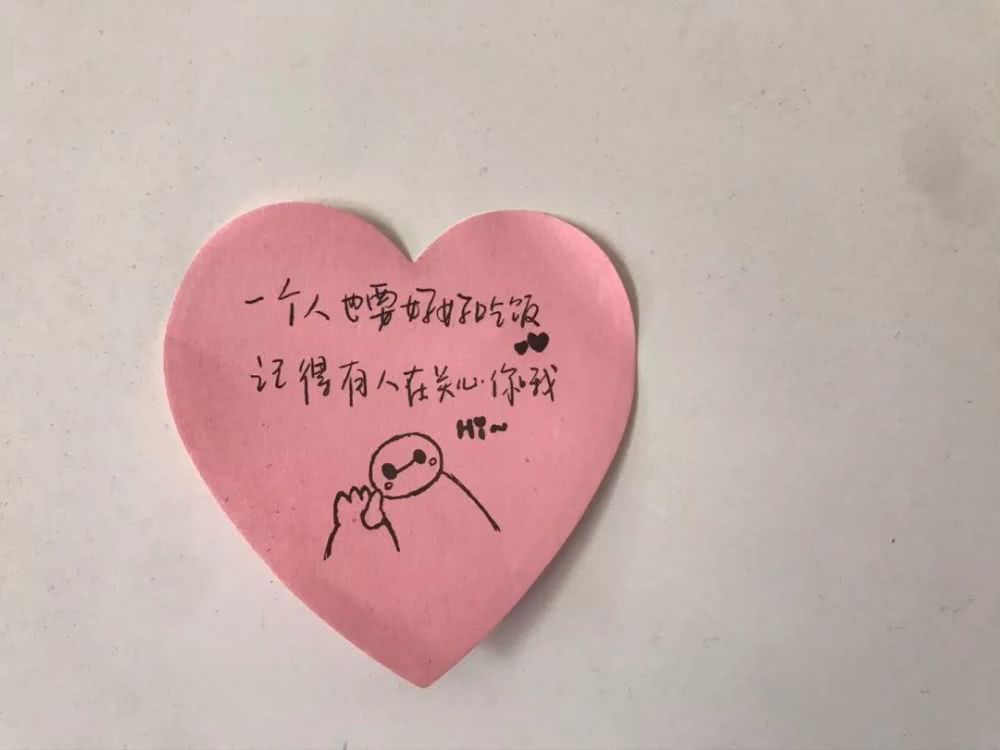 一个人也要好好吃饭
记得有人在关心你哦
Hi~